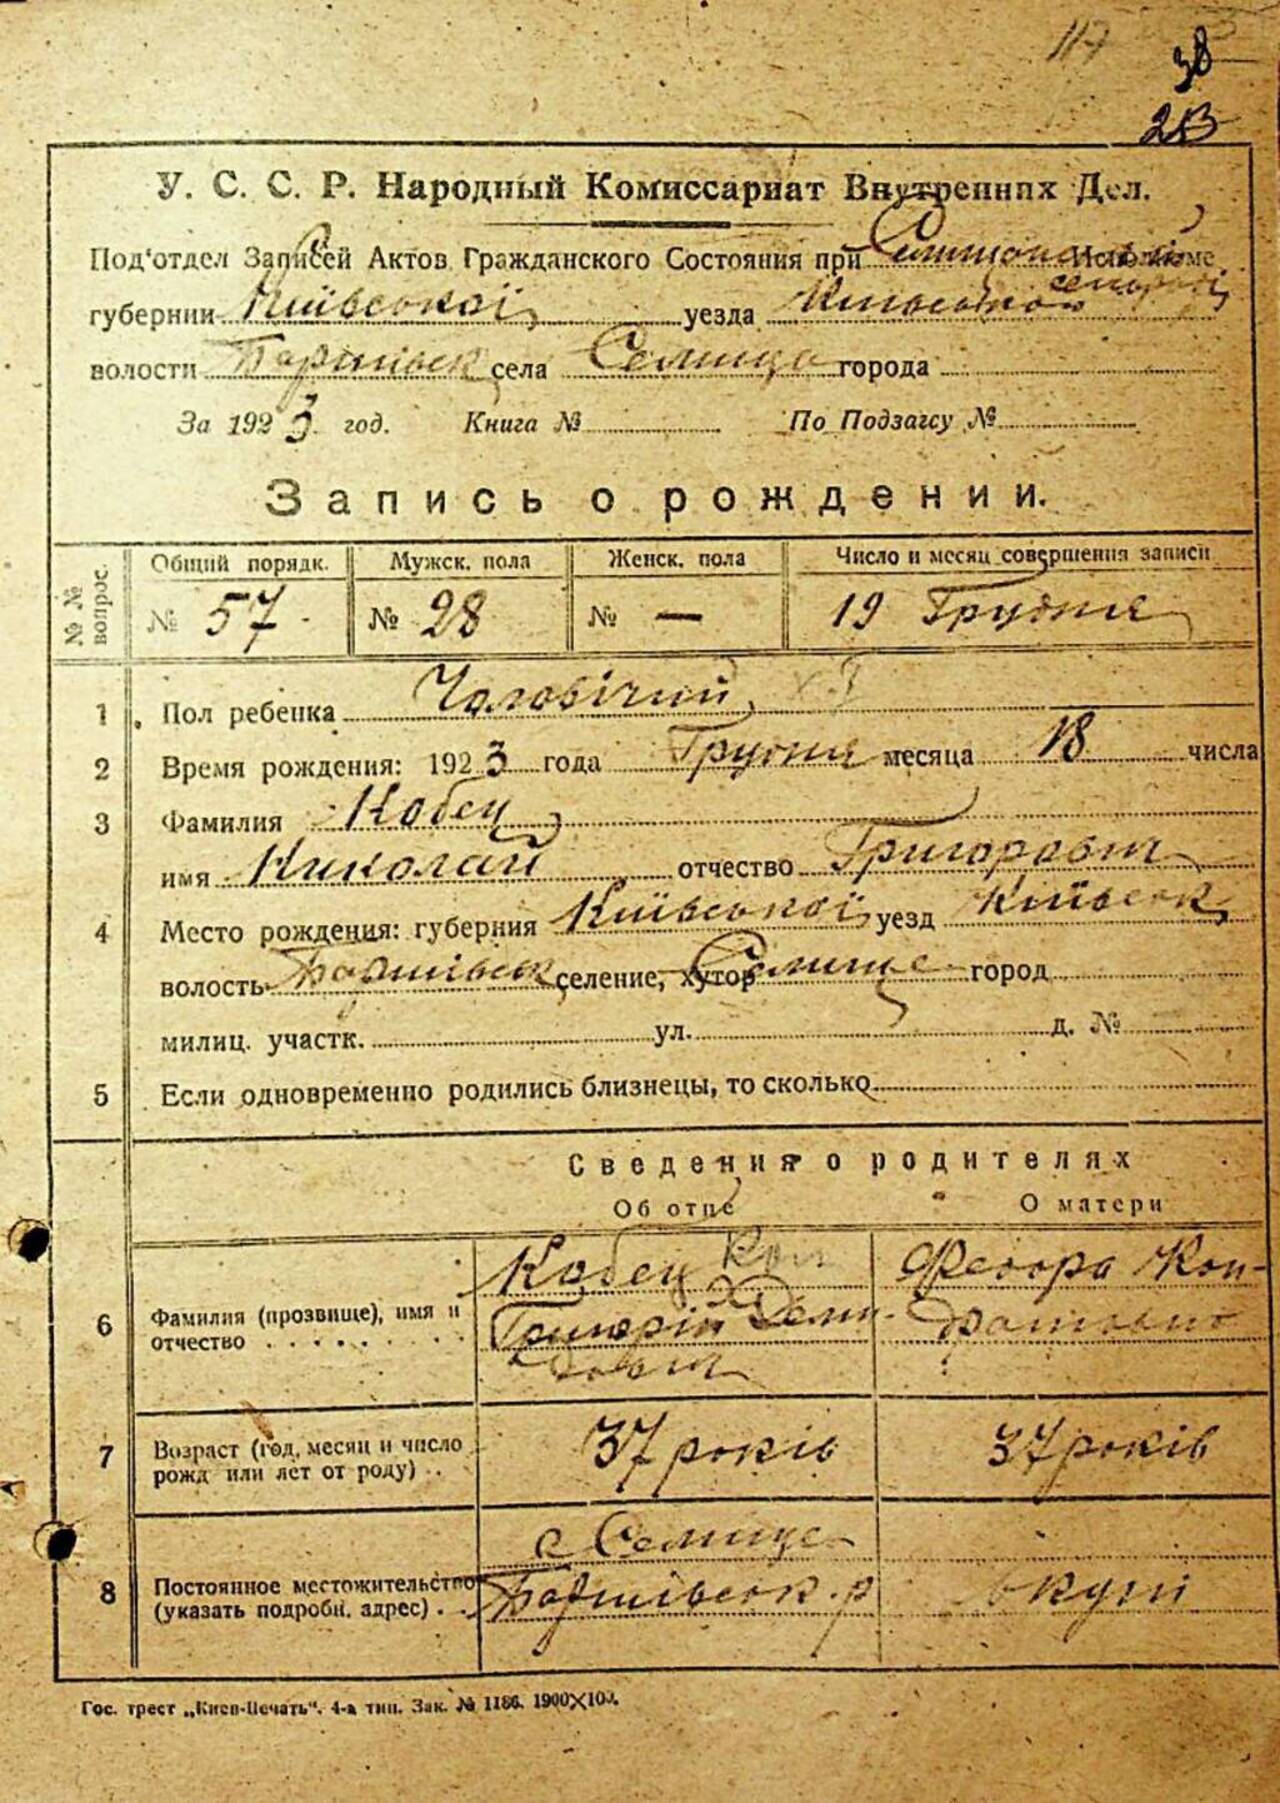 117
38
213
У. С. С. Р. Народный Комиссариат Внутренних Дел.
Под'отдел Записей Актов Гражданского Состояния при Исполкоме
губернии Київської уезда
волости села Селище города
За 1923 год. Книга № По Подзагсу №
Запись о рождении.
№ № вопрос. Общий порядк. Мужск. пола Женск. пола Число и месяц совершения записи
№ 57 № 28 № — 19 Грудня
1 Пол ребенка Чоловічий
2 Время рождения: 1923 года Грудня месяца 18 числа
3 Фамилия Кобец
имя Николай отчество Григоровит
4 Место рождения: губерния Київської уезд Київськ
волость селение, хутор Селище город
милиц. участк. ул. д. №
5 Если одновременно родились близнецы, то сколько
Сведения о родителях
Об отце О матери
6 Фамилия (прозвище), имя и отчество Кобец Григорій Деми-
довит
Федора Кон-
дратовна
7 Возраст (год, месяц и число рожд или лет от роду) 37 років 37 років
8 Постоянное местожительство (указать подробн. адрес) с Селище
р
вкупі
Гос. трест „Киев-Печать“. 4-а тип. Зак. № 1186. 1900×100.